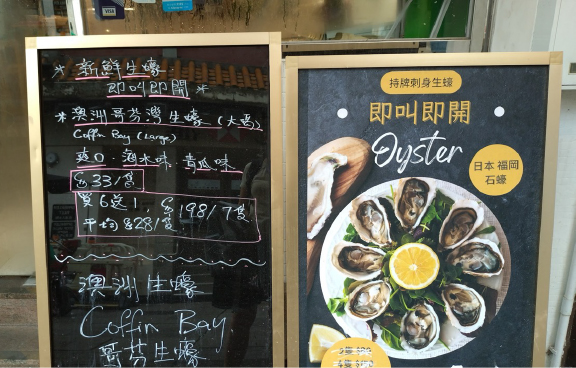 * 新鮮生蠔
即叫即開 *
* 澳洲哥芬灣生蠔 (大隻)
Coffin Bay (Large)
爽口、海水味、青瓜味
$33/隻
買6送1, $198/7隻
平均$28/隻
澳洲生蠔
Coffin Bay
哥芬生蠔
持牌刺身生蠔
即叫即開
Oyster
日本 福岡
石蠔